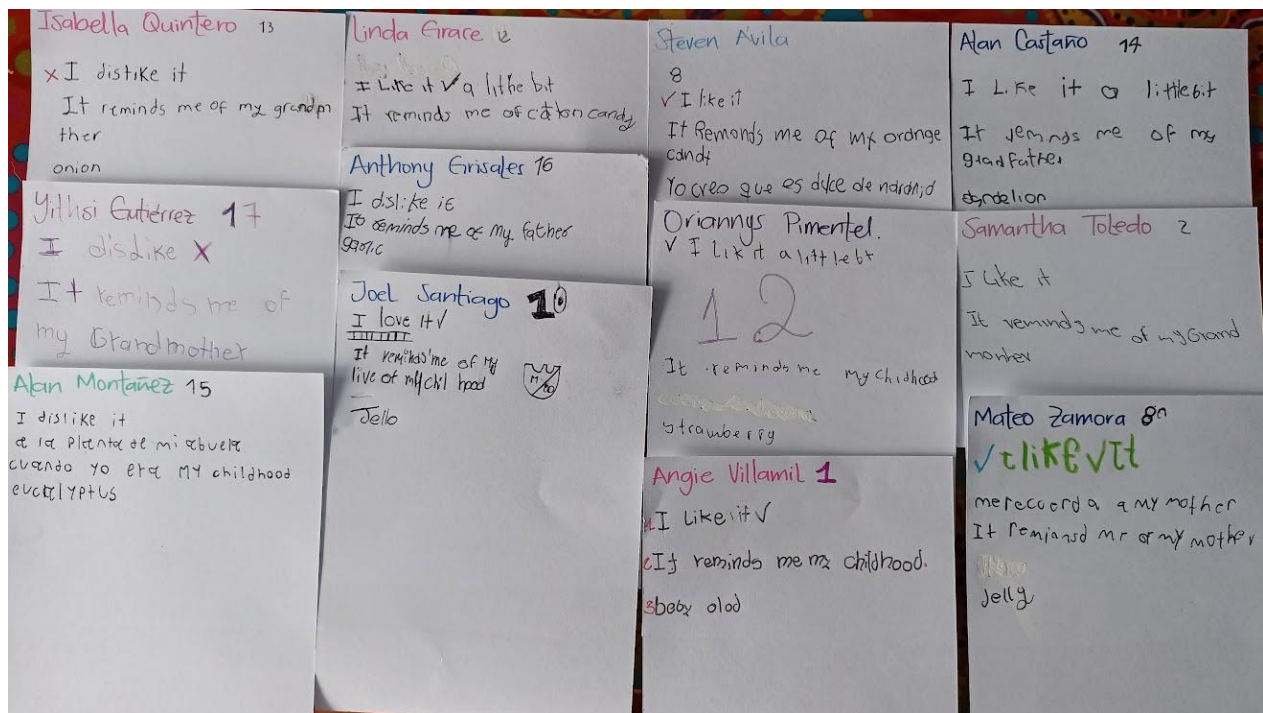 Isabella Quintero 13
x I distike it
It reminds me of my grandpn
ther
onion
Yithsi Gutiérrez 17
I disdike x
It reminds me of
my Grandmother
Alan Montañez 15
I dislike it
a la planta de mi abuela
cuando yo era MY childhood
eucalyptus
Linda Grace
I Like it ✓ a lithe bit
It reminds me of catton candy
Anthony Grisales 16
I dslike it
It reminds me of my father
garlic
Joel Santiago 10
I love it ✓
It reminds me of My
live of my chil hood
Jello
Steven Ávila
8
✓ I like it
It Remonds me of my orange
candy
Yo creo que es dulce de
Oriannys Pimentel.
✓ I Lik it a little bt
12
It reminds me my chidhood
strawberry
Angie Villamil 1
1 I Like it ✓
2 It reminds me my childhood.
3 beby olod
Alan Castaño 14
I Like it a little bit
It remnds me of my
grandfather
dandelion
Samantha Toledo 2
I Like it
It reminds me of my Grand
monher
Mateo Zamora 8
✓ I like ✓ It
me recuerda a my mother
It remiansd mr of my mother
Jelly